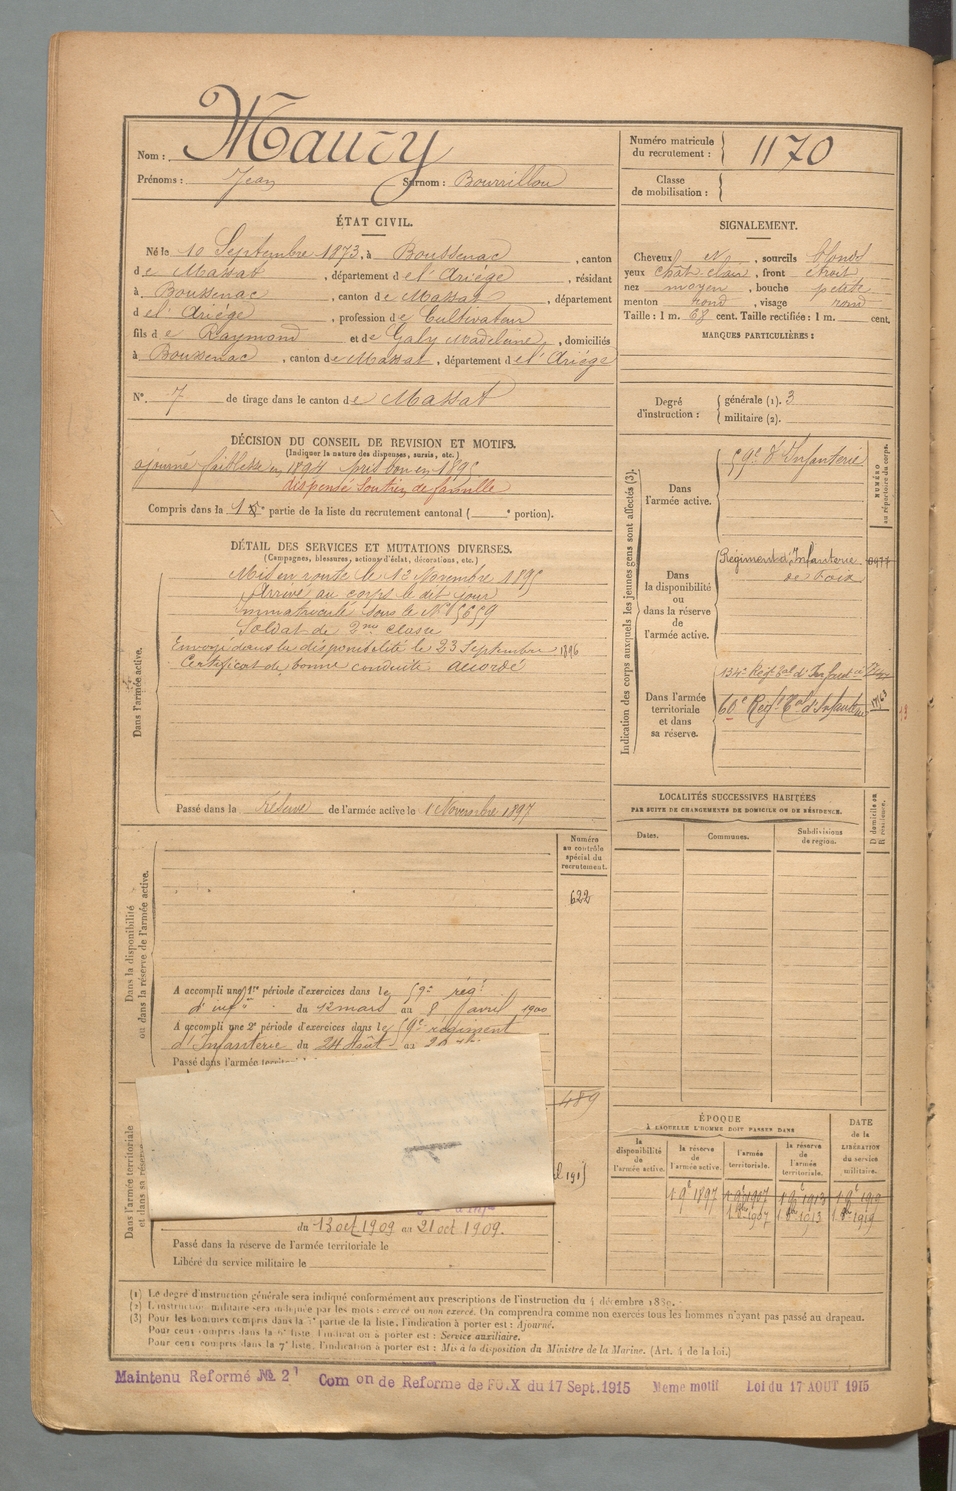 Nom : Maury
Prénoms : Jean Surnom : Bourrillou
Numéro matricule du recrutement : 1170
Classe de mobilisation :
ÉTAT CIVIL.
Né le 10 Septembre 1873, à Boussenac, canton
de Massat, département de l'Ariège, résidant
à Boussenac, canton de Massat, département
de l'Ariège, profession de Cultivateur
fils de Raymond et de Galy Madeleine, domiciliés
à Boussenac, canton de Massat, département de l'Ariège
N° 7 de tirage dans le canton de Massat
SIGNALEMENT.
Cheveux , sourcils blonds
yeux chat. clair, front étroit
nez moyen, bouche petite
menton rond, visage rond
Taille : 1 m. 68 cent. Taille rectifiée : 1 m. cent.
MARQUES PARTICULIÈRES :
Degré d'instruction : générale (1). 3
militaire (2).
DÉCISION DU CONSEIL DE REVISION ET MOTIFS.
(Indiquer la nature des dispenses, sursis, etc.)
ajourné faiblesse en 1894 pris bon en 1895
dispensé Soutien de famille
Compris dans la 1e partie de la liste du recrutement cantonal ( e portion).
DÉTAIL DES SERVICES ET MUTATIONS DIVERSES.
(Campagnes, blessures, actions d'éclat, décorations, etc.)
Dans l'armée active.
Mis en route le 13 Novembre 1895
Arrivé au corps le dit jour
immatriculé sous le N° 5659
Soldat de 2me classe
Envoyé dans la disponibilité le 23 Septembre 1896
Certificat de bonne conduite accordé
Passé dans la réserve de l'armée active le 1 Novembre 1897
Indication des corps auxquels les jeunes gens sont affectés (3).
NUMÉRO au répertoire du corps.
Dans l'armée active.
59e d'Infanterie
Dans la disponibilité ou dans la réserve de l'armée active.
Régiment d'Infanterie
de Foix
Dans l'armée territoriale et dans sa réserve.
134e Régt Tal d'Inf
60e Régt Tal d'Infanterie
LOCALITÉS SUCCESSIVES HABITÉES
PAR SUITE DE CHANGEMENTS DE DOMICILE OU DE RÉSIDENCE.
Dates. Communes. Subdivisions de région. D domicile ou R résidence.
Dans la disponibilité ou dans la réserve de l'armée active.
Numéro au contrôle spécial du recrutement.
622
A accompli une 1re période d'exercices dans le 59e régt
d'infie du 12 mars au 8 avril 1900
A accompli une 2e période d'exercices dans le 59e régiment
d'Infanterie du 24 Août au
Passé dans l'armée
Dans l'armée territoriale et dans sa réserve
489
du 13 oct 1909 au 21 oct 1909.
Passé dans la réserve de l'armée territoriale le
Libéré du service militaire le
ÉPOQUE
A LAQUELLE L'HOMME DOIT PASSER DANS
la disponibilité de l'armée active.
la réserve de l'armée active.
l'armée territoriale.
la réserve de l'armée territoriale.
DATE de la LIBÉRATION du service militaire.
1 9e 1897 1 9e 1907 1 9e 1913 1 9e 1919
1 8bre 1907 1 8bre 1913 1 8bre 1919
(1) Le degré d'instruction générale sera indiqué conformément aux prescriptions de l'instruction du 4 décembre 1889.
(2) L'instruction militaire sera indiquée par les mots : exercé ou non exercé. On comprendra comme non exercés tous les hommes n'ayant pas passé au drapeau.
(3) Pour les hommes compris dans la 5e partie de la liste, l'indication à porter est : Ajourné.
Pour ceux compris dans la 6e liste l'indication à porter est : Service auxiliaire.
Pour ceux compris dans la 7e liste, l'indication à porter est : Mis à la disposition du Ministre de la Marine. (Art. 4 de la loi.)
Maintenu Reformé № 2 Com on de Reforme de FOIX du 17 Sept. 1915 Meme motif Loi du 17 AOUT 1915